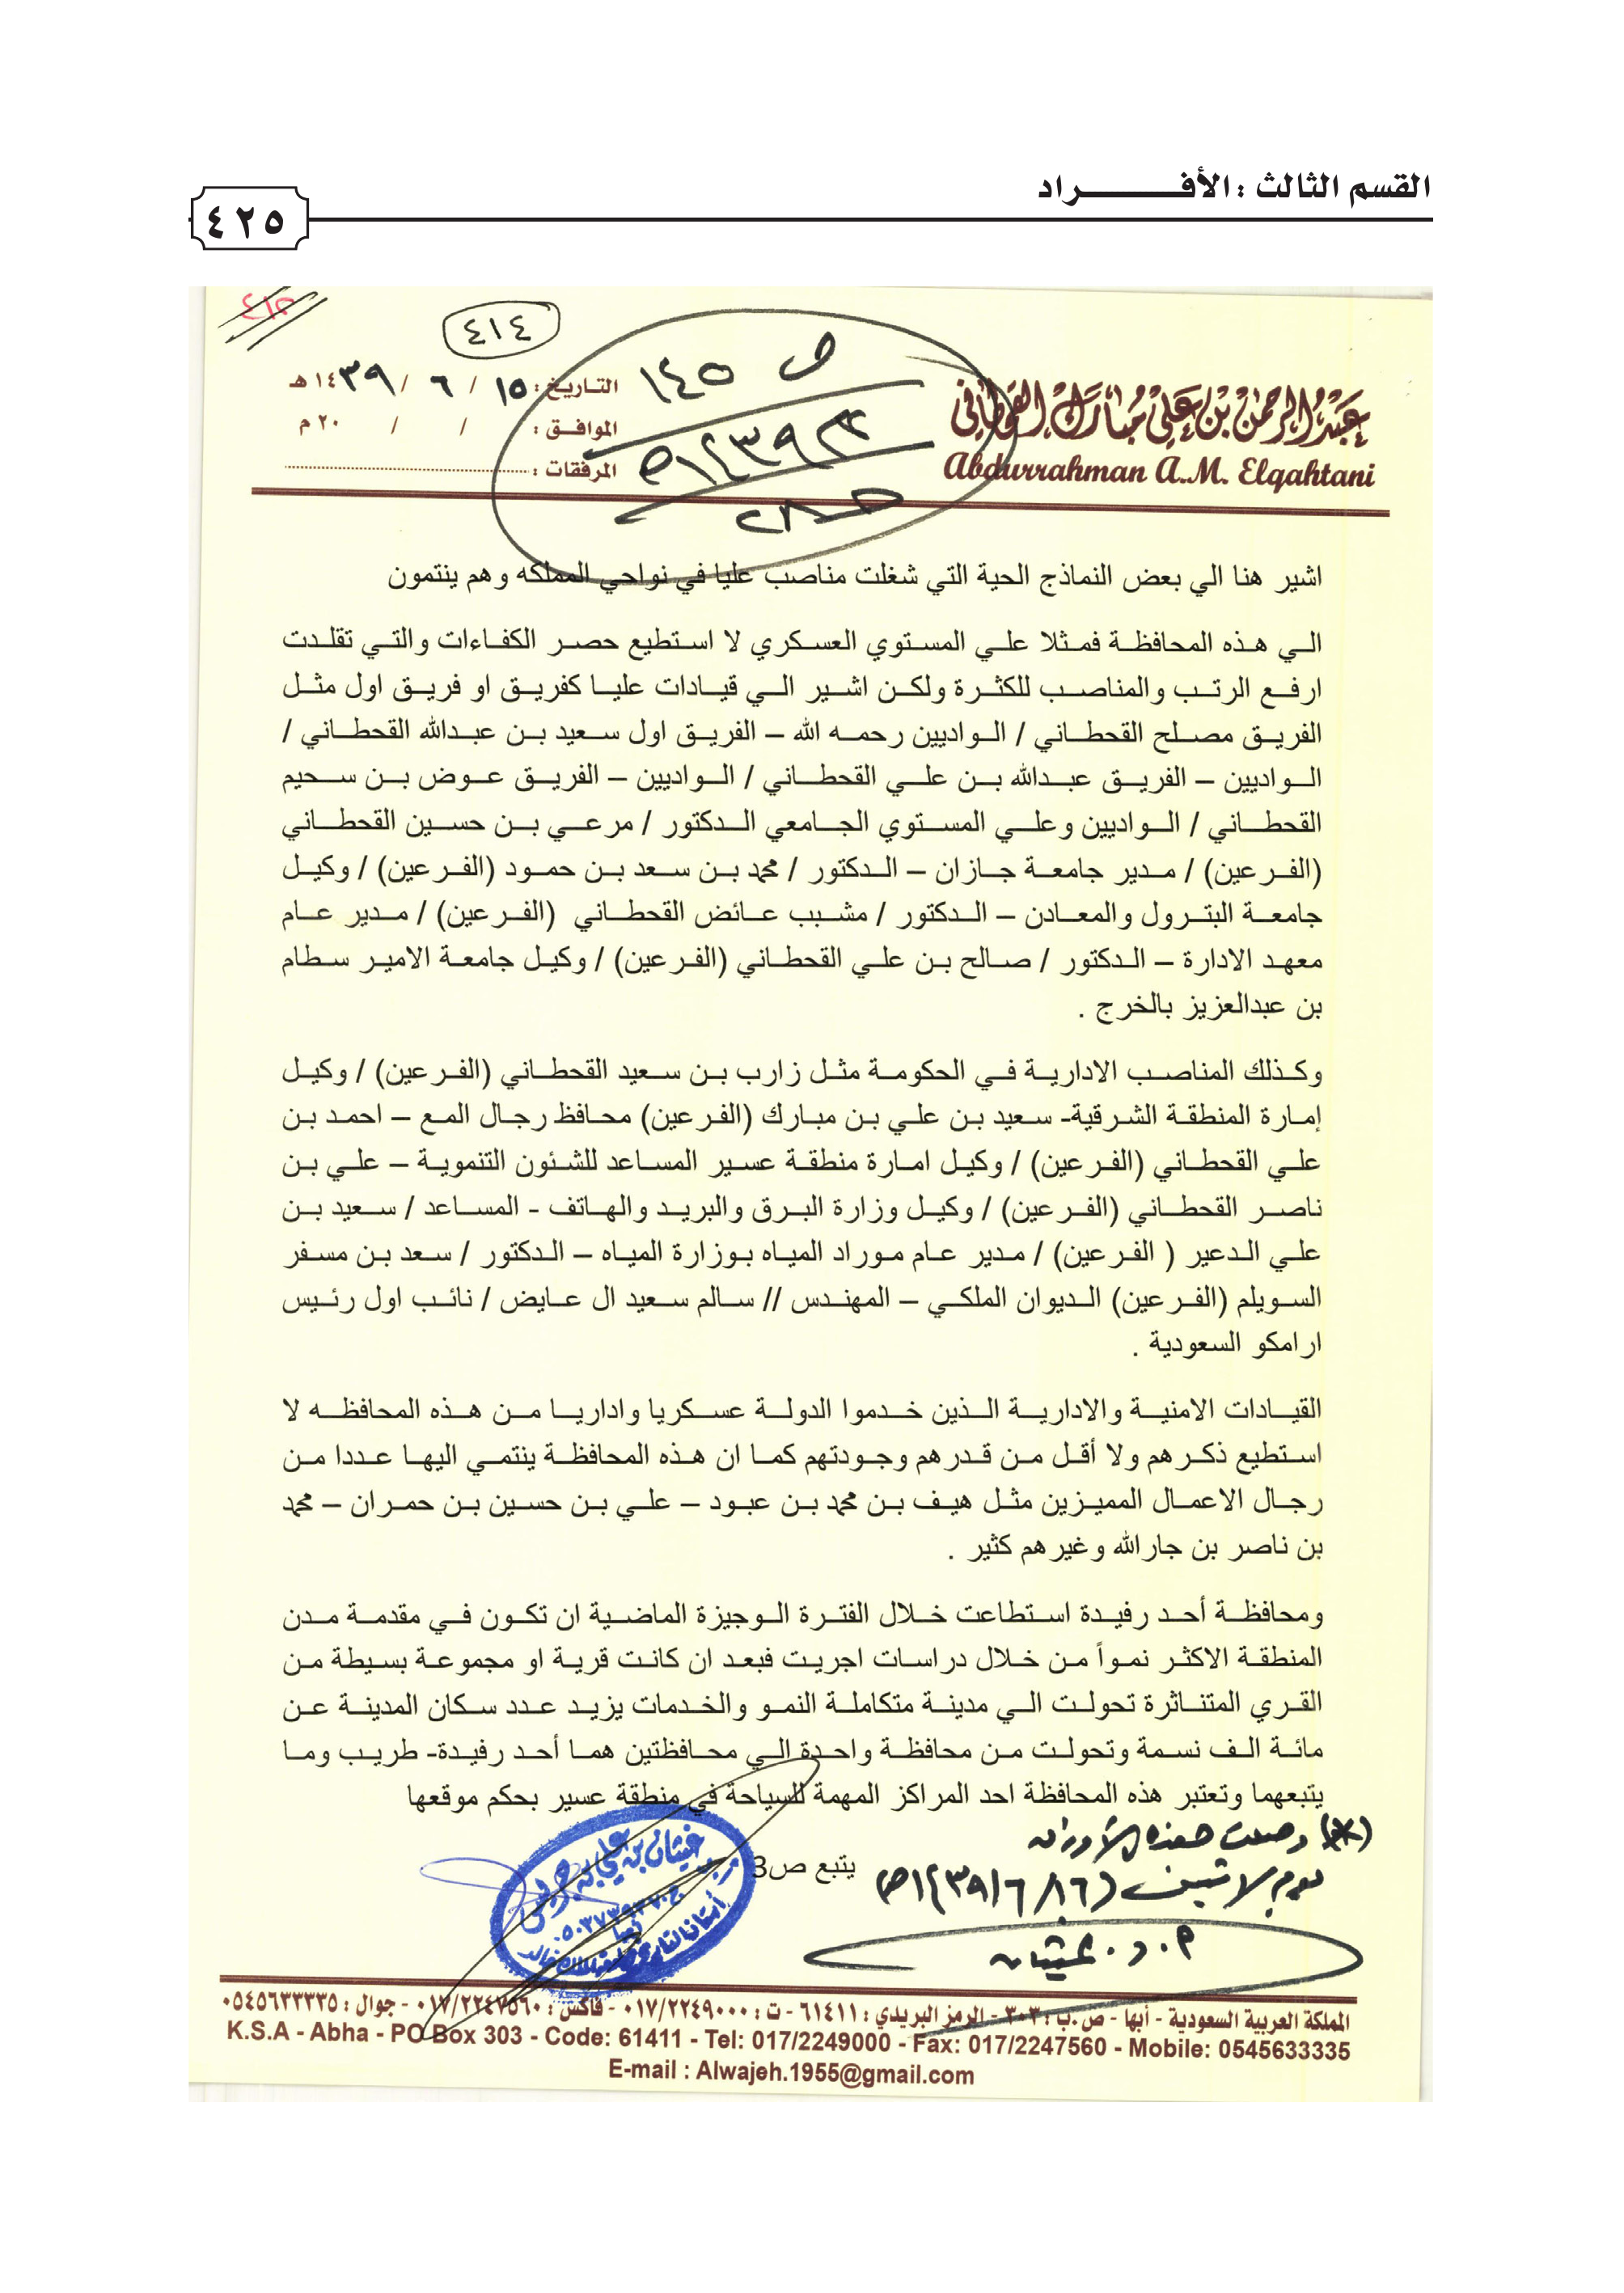 القسم الثالث : الأفـــــــراد
٤٢٥
٤١٤
ص ١٤٥
التاريخ : ١٥ / ٦ / ١٤٣٩ هـ
الموافق : / / ٢٠ م
المرفقات :
عبدالرحمن بن علي مبارك القحطاني
Abdurrahman A.M. Elqahtani
اشير هنا الي بعض النماذج الحية التي شغلت مناصب عليا في نواحي المملكه وهم ينتمون
الي هذه المحافظة فمثلا علي المستوي العسكري لا استطيع حصر الكفاءات والتي تقلدت
ارفع الرتب والمناصب للكثرة ولكن اشير الي قيادات عليا كفريق او فريق اول مثل
الفريق مصلح القحطاني / الواديين رحمه الله – الفريق اول سعيد بن عبدالله القحطاني /
الواديين – الفريق عبدالله بن علي القحطاني / الواديين – الفريق عوض بن سحيم
القحطاني / الواديين وعلي المستوي الجامعي الدكتور / مرعي بن حسين القحطاني
(الفرعين) / مدير جامعة جازان – الدكتور / محمد بن سعد بن حمود (الفرعين) / وكيل
جامعة البترول والمعادن – الدكتور / مشبب عائض القحطاني (الفرعين) / مدير عام
معهد الادارة – الدكتور / صالح بن علي القحطاني (الفرعين) / وكيل جامعة الامير سطام
بن عبدالعزيز بالخرج .
وكذلك المناصب الادارية في الحكومة مثل زارب بن سعيد القحطاني (الفرعين) / وكيل
إمارة المنطقة الشرقية- سعيد بن علي بن مبارك (الفرعين) محافظ رجال المع – احمد بن
علي القحطاني (الفرعين) / وكيل امارة منطقة عسير المساعد للشئون التنموية – علي بن
ناصر القحطاني (الفرعين) / وكيل وزارة البرق والبريد والهاتف - المساعد / سعيد بن
علي الدعير ( الفرعين) / مدير عام موراد المياه بوزارة المياه – الدكتور / سعد بن مسفر
السويلم (الفرعين) الديوان الملكي – المهندس // سالم سعيد ال عايض / نائب اول رئيس
ارامكو السعودية .
القيادات الامنية والادارية الذين خدموا الدولة عسكريا واداريا من هذه المحافظه لا
استطيع ذكرهم ولا أقل من قدرهم وجودتهم كما ان هذه المحافظة ينتمي اليها عددا من
رجال الاعمال المميزين مثل هيف بن محمد بن عبود – علي بن حسين بن حمران – محمد
بن ناصر بن جارالله وغيرهم كثير .
ومحافظة أحد رفيدة استطاعت خلال الفترة الوجيزة الماضية ان تكون في مقدمة مدن
المنطقة الاكثر نمواً من خلال دراسات اجريت فبعد ان كانت قرية او مجموعة بسيطة من
القري المتناثرة تحولت الي مدينة متكاملة النمو والخدمات يزيد عدد سكان المدينة عن
مائة الف نسمة وتحولت من محافظة واحدة الي محافظتين هما أحد رفيدة- طريب وما
يتبعهما وتعتبر هذه المحافظة احد المراكز المهمة للسياحة في منطقة عسير بحكم موقعها
(*) وصلت هذه الأوراق
يوم الاثنين (١٦/٦/١٤٣٩هـ)
يتبع ص3
غيثان بن علي بن جريس
المملكة العربية السعودية - أبها - ص.ب : ٣٠٣ - الرمز البريدي : ٦١٤١١ - ت : ٠١٧/٢٢٤٩٠٠٠ - فاكس : ٠١٧/٢٢٤٧٥٦٠ - جوال : ٠٥٤٥٦٣٣٣٣٥
K.S.A - Abha - PO Box 303 - Code: 61411 - Tel: 017/2249000 - Fax: 017/2247560 - Mobile: 0545633335
E-mail : Alwajeh.1955@gmail.com